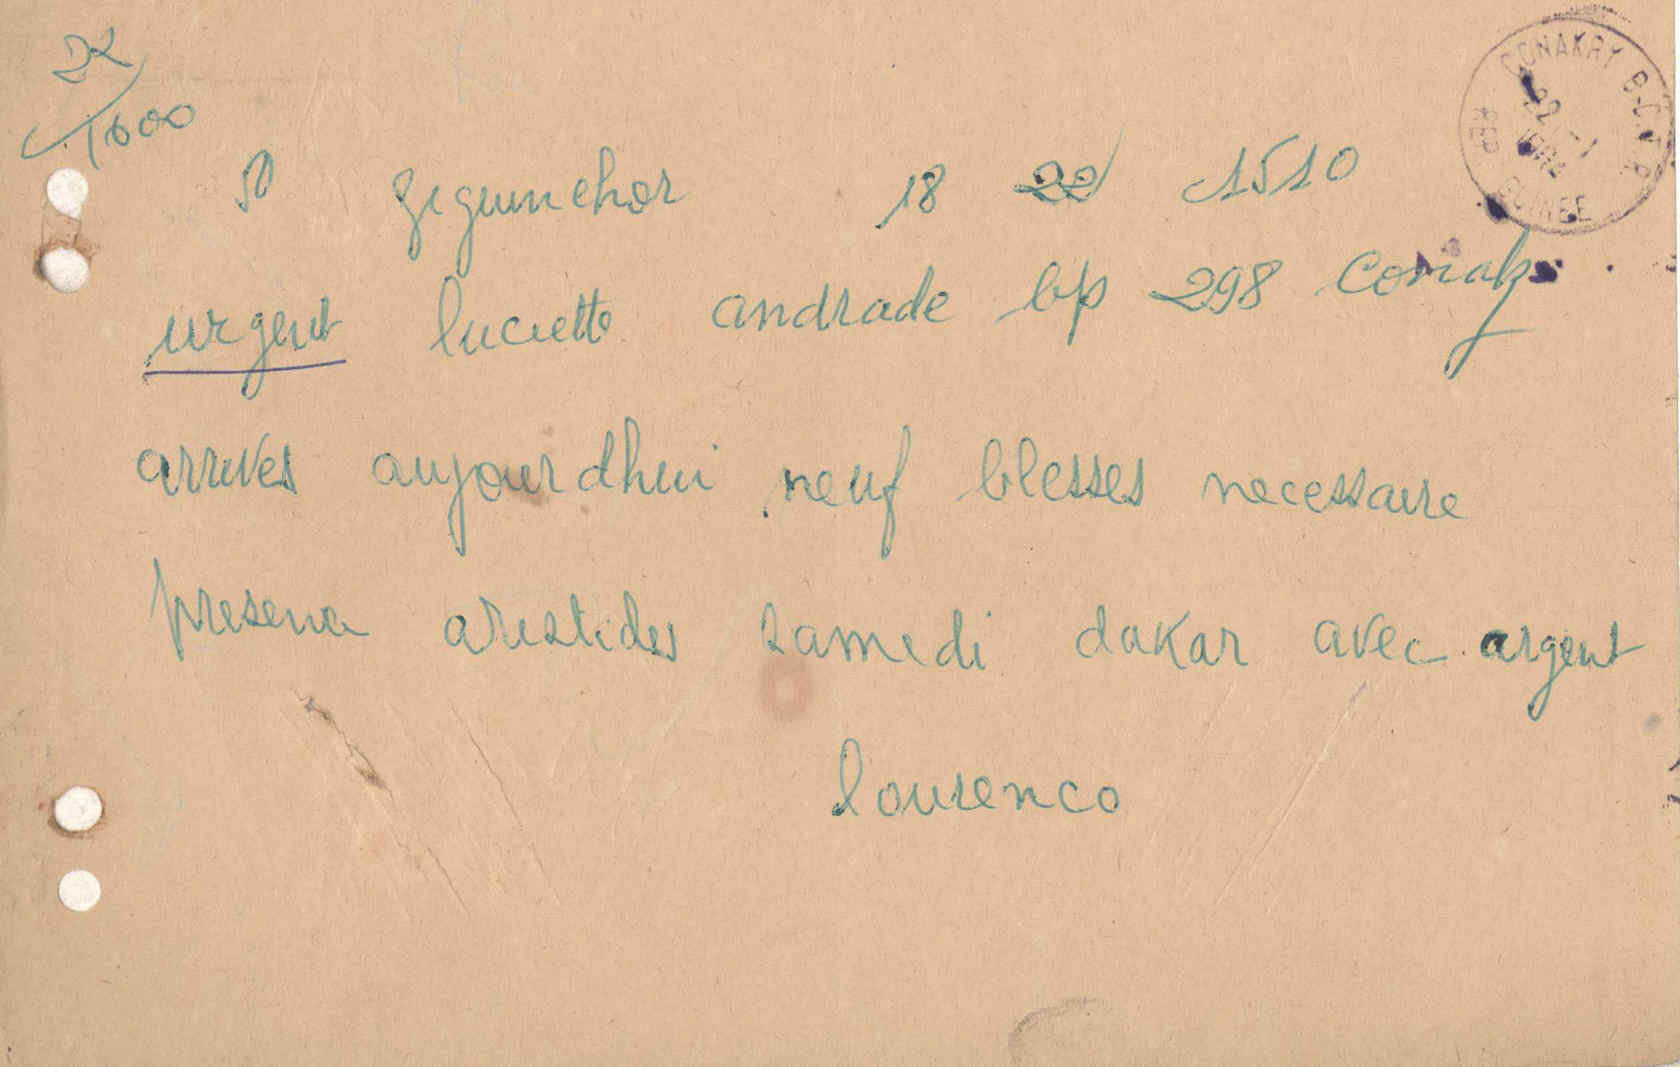 22
1600
CONAKRY B.C.T.R
22 -1
REP GUINEE
50 ziguinchor 18 22 1510
urgent luciette andrade bp 298 Conaky
arrives aujourdhui neuf blesses necessaire
presence aristides samedi dakar avec argent
lourenco